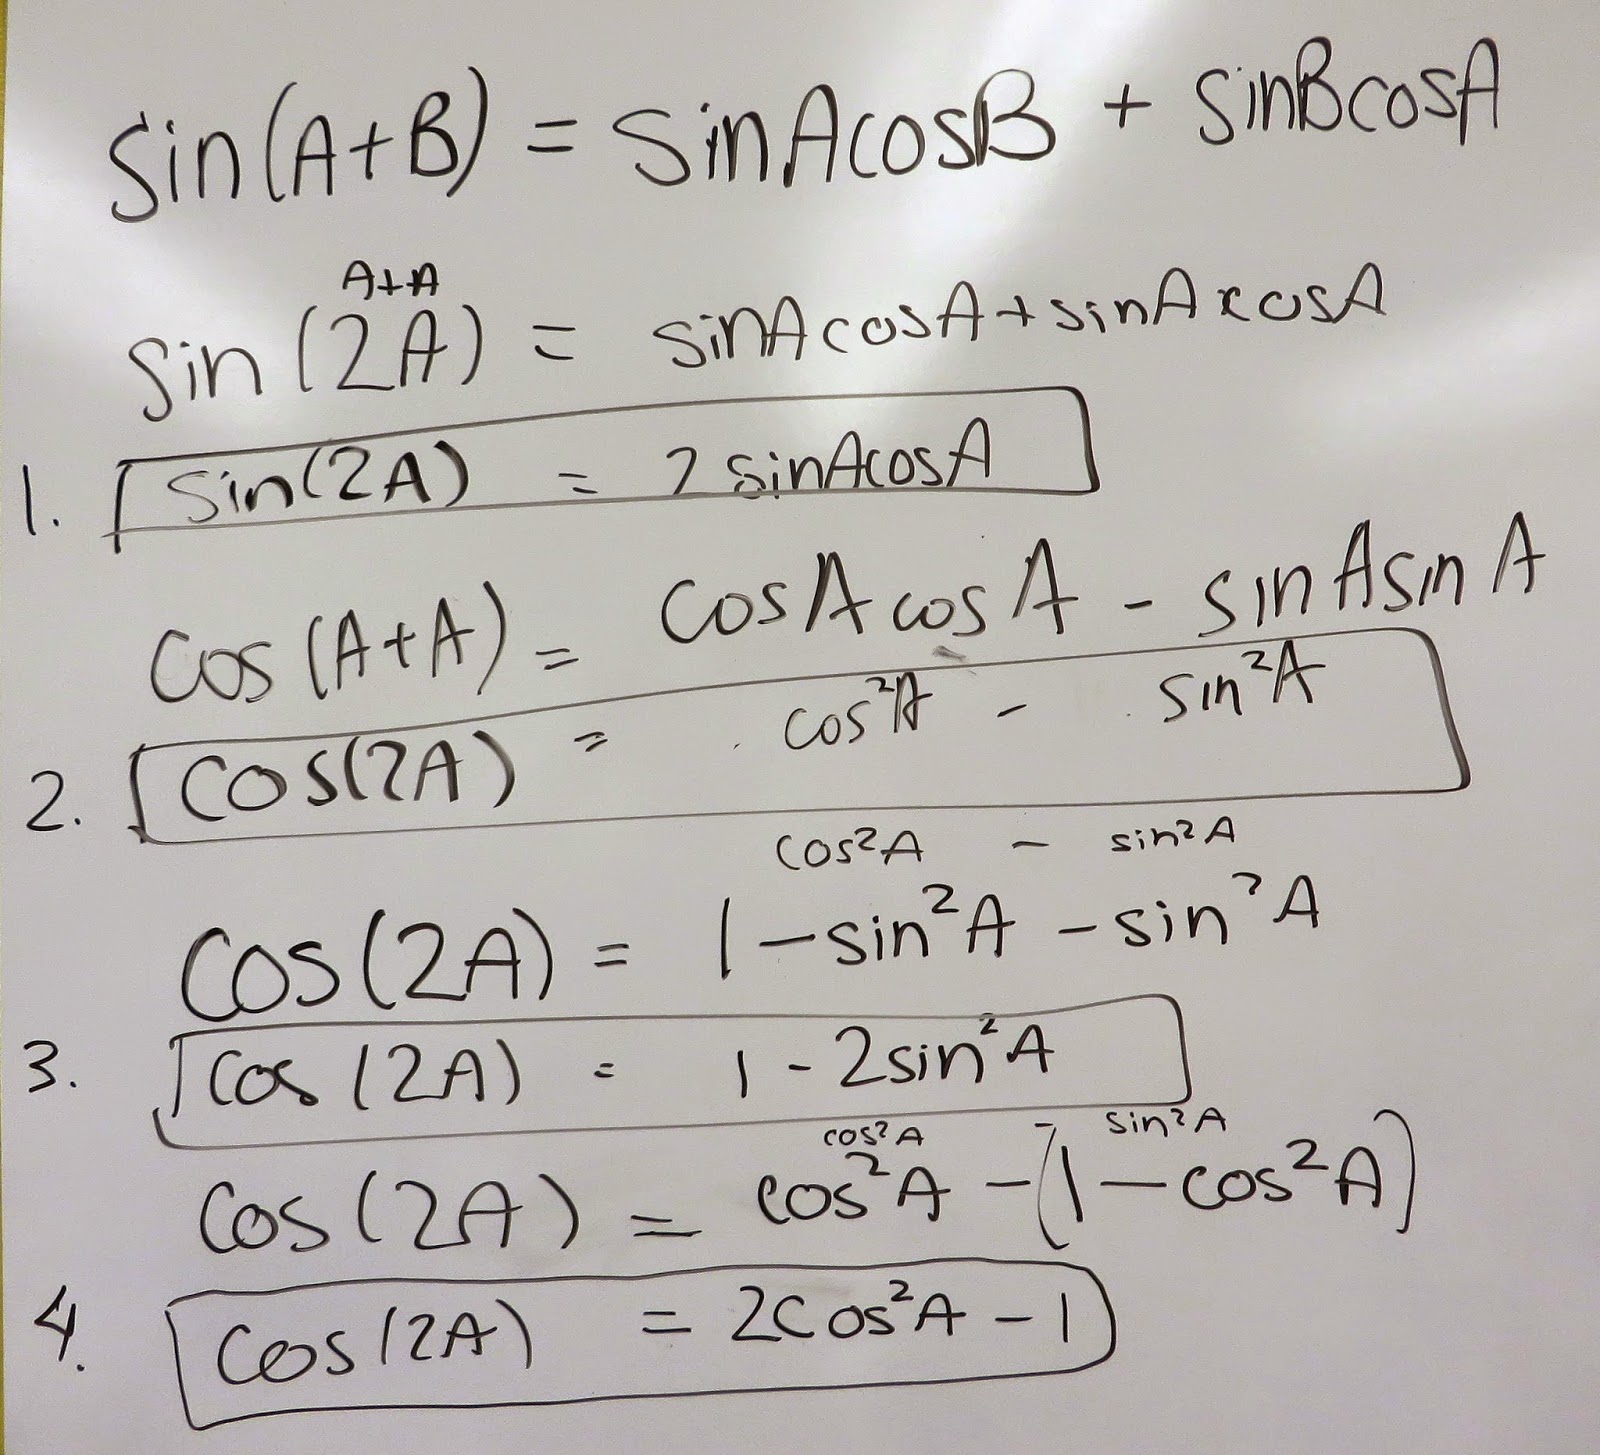 sin(A+B) = sinAcosB + sinBcosA
A+A
sin(2A) = sinAcosA+sinAxcosA
1. sin(2A) = 2sinAcosA
cos(A+A) = cosAcosA - sinAsinA
2. cos(2A) = cos²A - sin²A
cos²A - sin²A
cos(2A) = 1-sin²A-sin²A
3. cos(2A) = 1-2sin²A
cos²A - sin²A
cos(2A) = cos²A-(1-cos²A)
4. cos(2A) = 2cos²A-1